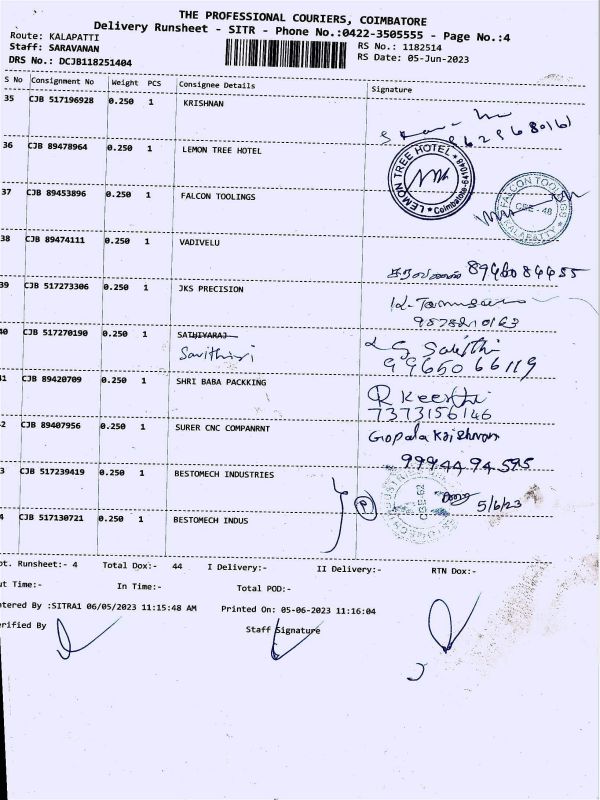 THE PROFESSIONAL COURIERS, COIMBATORE
Delivery Runsheet - SITR - Phone No.:0422-3505555 - Page No.:4
Route: KALAPATTI
Staff: SARAVANAN
RS No.: 1182514
DRS No.: DCJB118251404
RS Date: 05-Jun-2023
S No Consignment No Weight PCS Consignee Details Signature
35 CJB 517196928 0.250 1 KRISHNAN
36 CJB 89478964 0.250 1 LEMON TREE HOTEL
LEMON TREE HOTEL
Coimbatore-641048
37 CJB 89453896 0.250 1 FALCON TOOLINGS
FALCON TOOLINGS
CBE - 48
KALAPATTY
38 CJB 89474111 0.250 1 VADIVELU
39 CJB 517273306 0.250 1 JKS PRECISION
40 CJB 517270190 0.250 1 SATHIYARAJ
Savithiri
99650 66119
41 CJB 89420709 0.250 1 SHRI BABA PACKKING
R Keerthi
7373156146
42 CJB 89407956 0.250 1 SURER CNC COMPANRNT
Gopala Krishnan
99944 94 595
43 CJB 517239419 0.250 1 BESTOMECH INDUSTRIES
5/6/23
44 CJB 517130721 0.250 1 BESTOMECH INDUS
ot. Runsheet:- 4 Total Dox:- 44 I Delivery:- II Delivery:- RTN Dox:-
ut Time:- In Time:- Total POD:-
ntered By :SITRA1 06/05/2023 11:15:48 AM Printed On: 05-06-2023 11:16:04
erified By Staff Signature